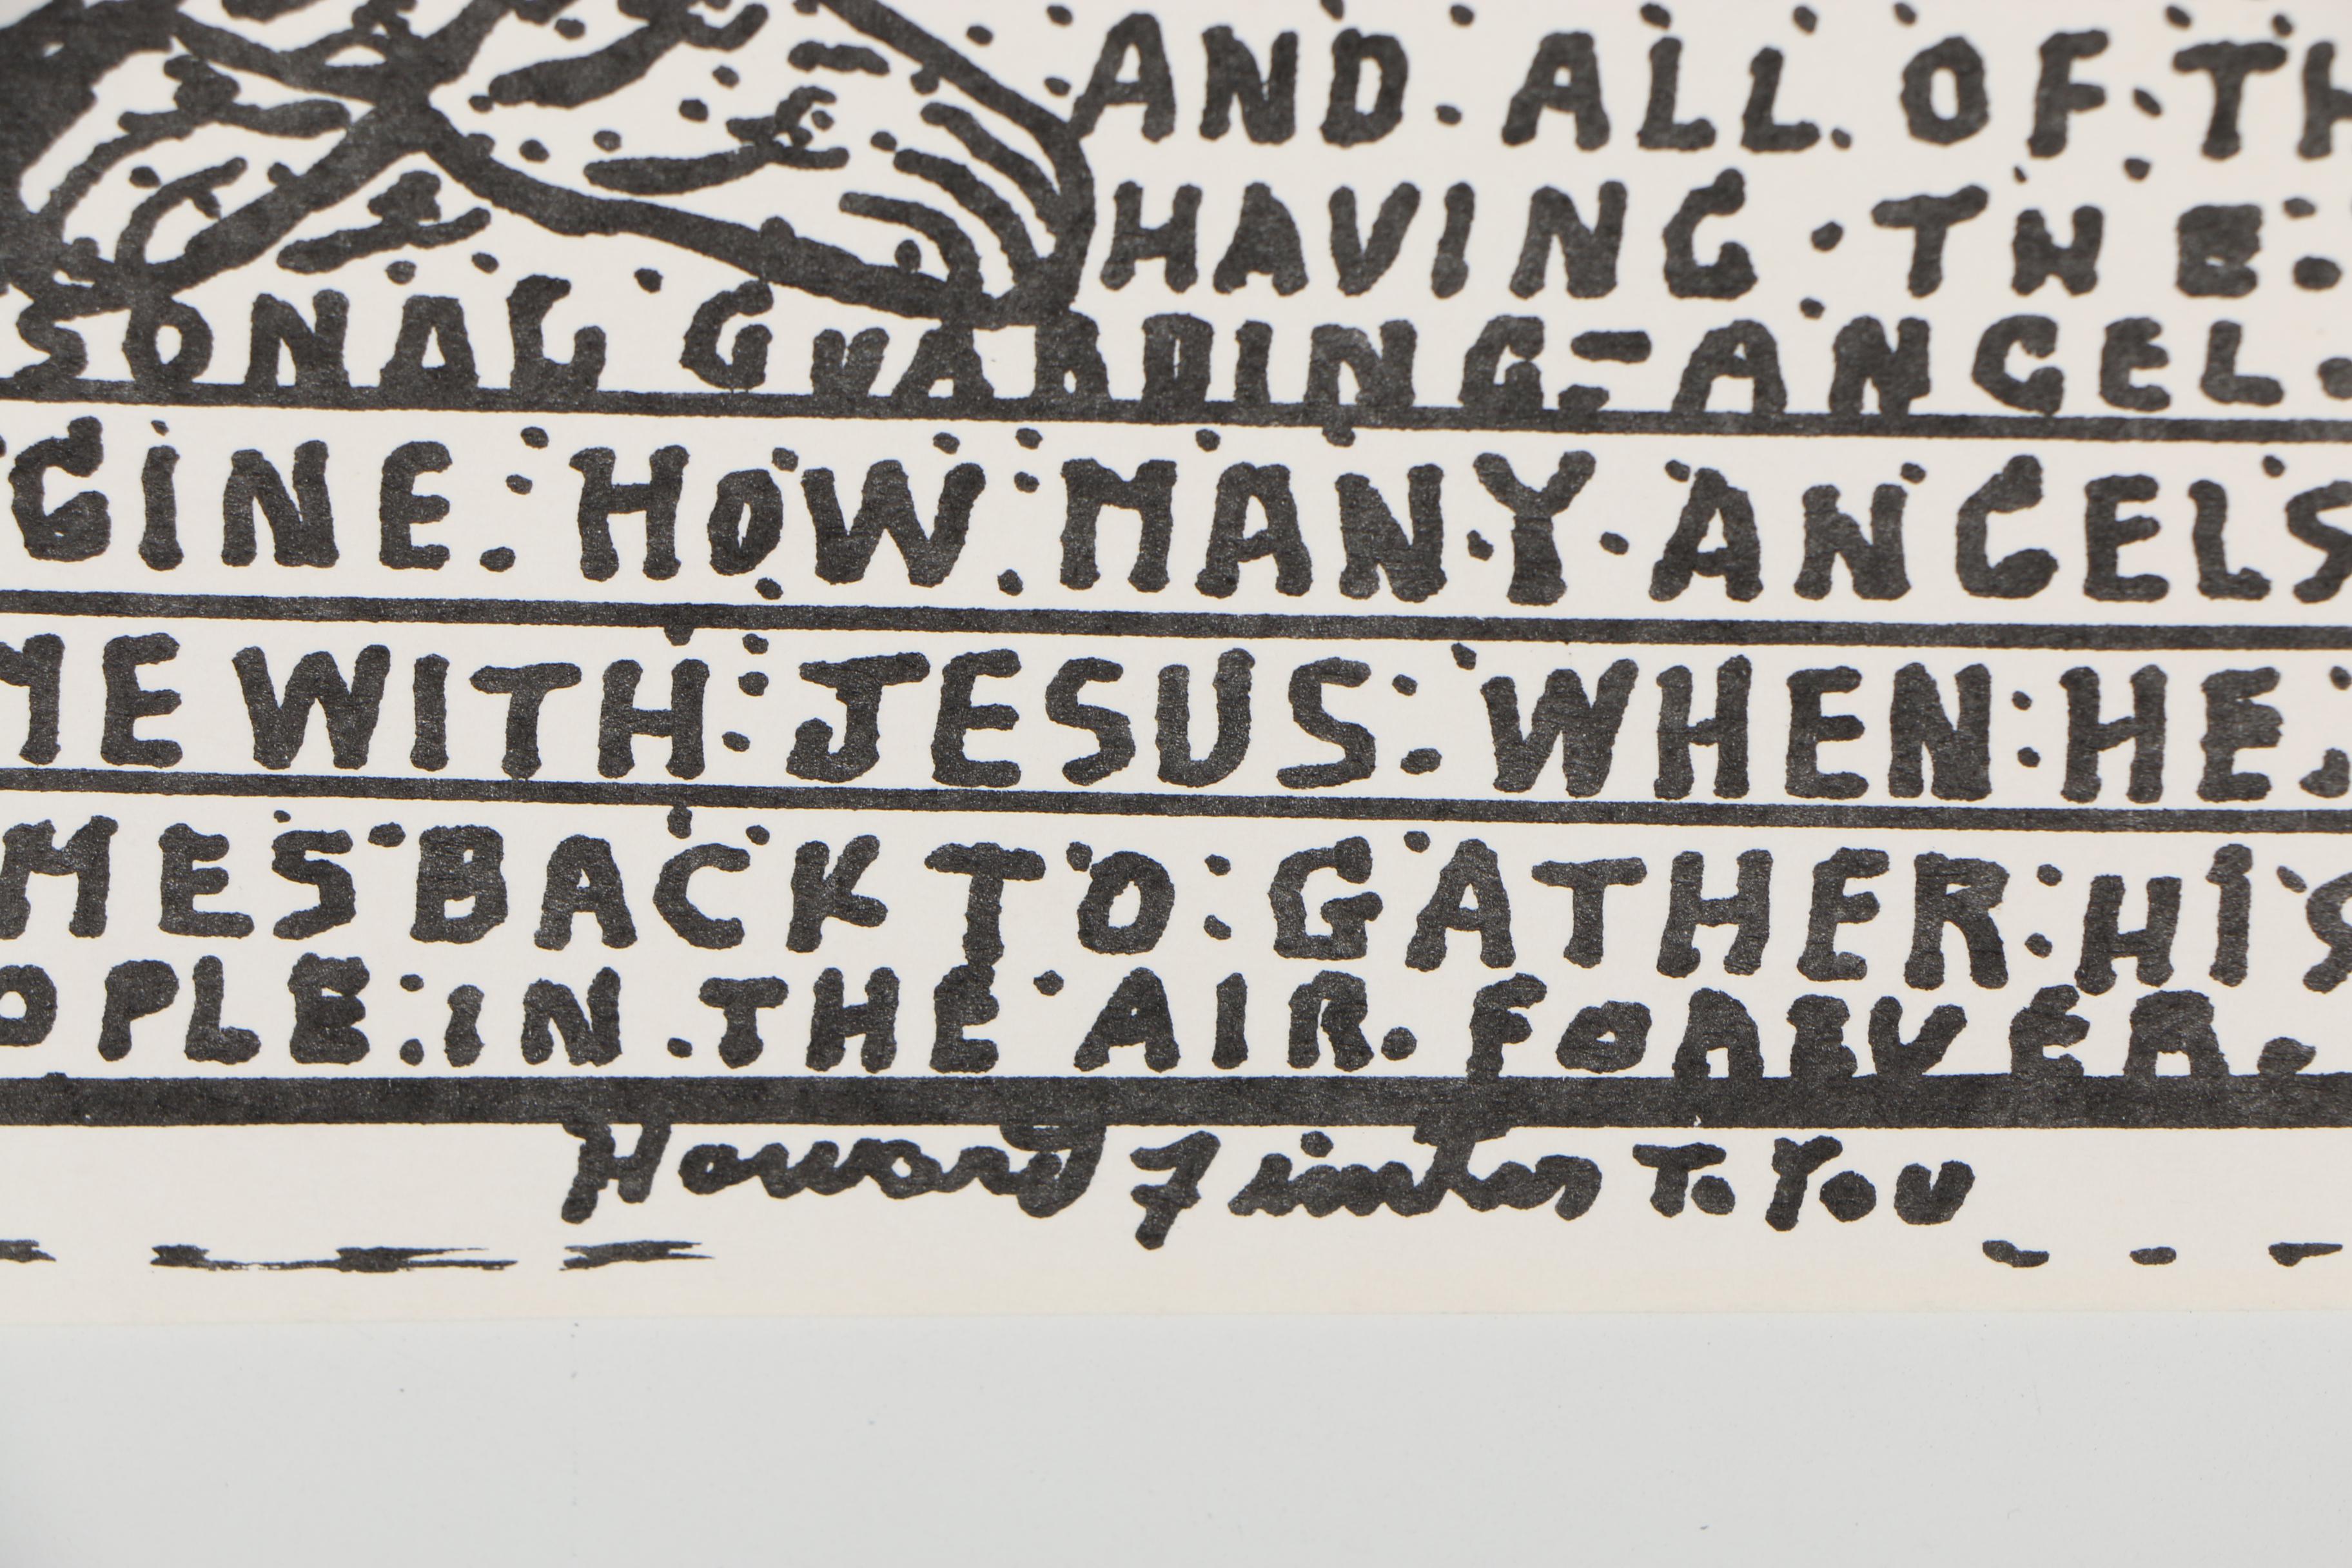 AND. ALL. OF. TH
HAVING. THE.
SONAL GUARDING-ANGEL.
GINE. HOW. MANY. ANGELS
ME WITH: JESUS: WHEN: HE.
MES BACK TO: GATHER: HIS
OPLE: IN. THE AIR. FOREVER.
Howard Finster To You